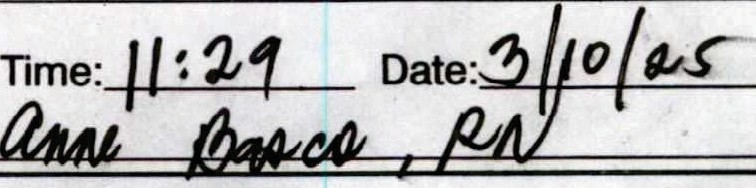 Time: 11:29 Date: 3/10/25
Anne Basco, RN